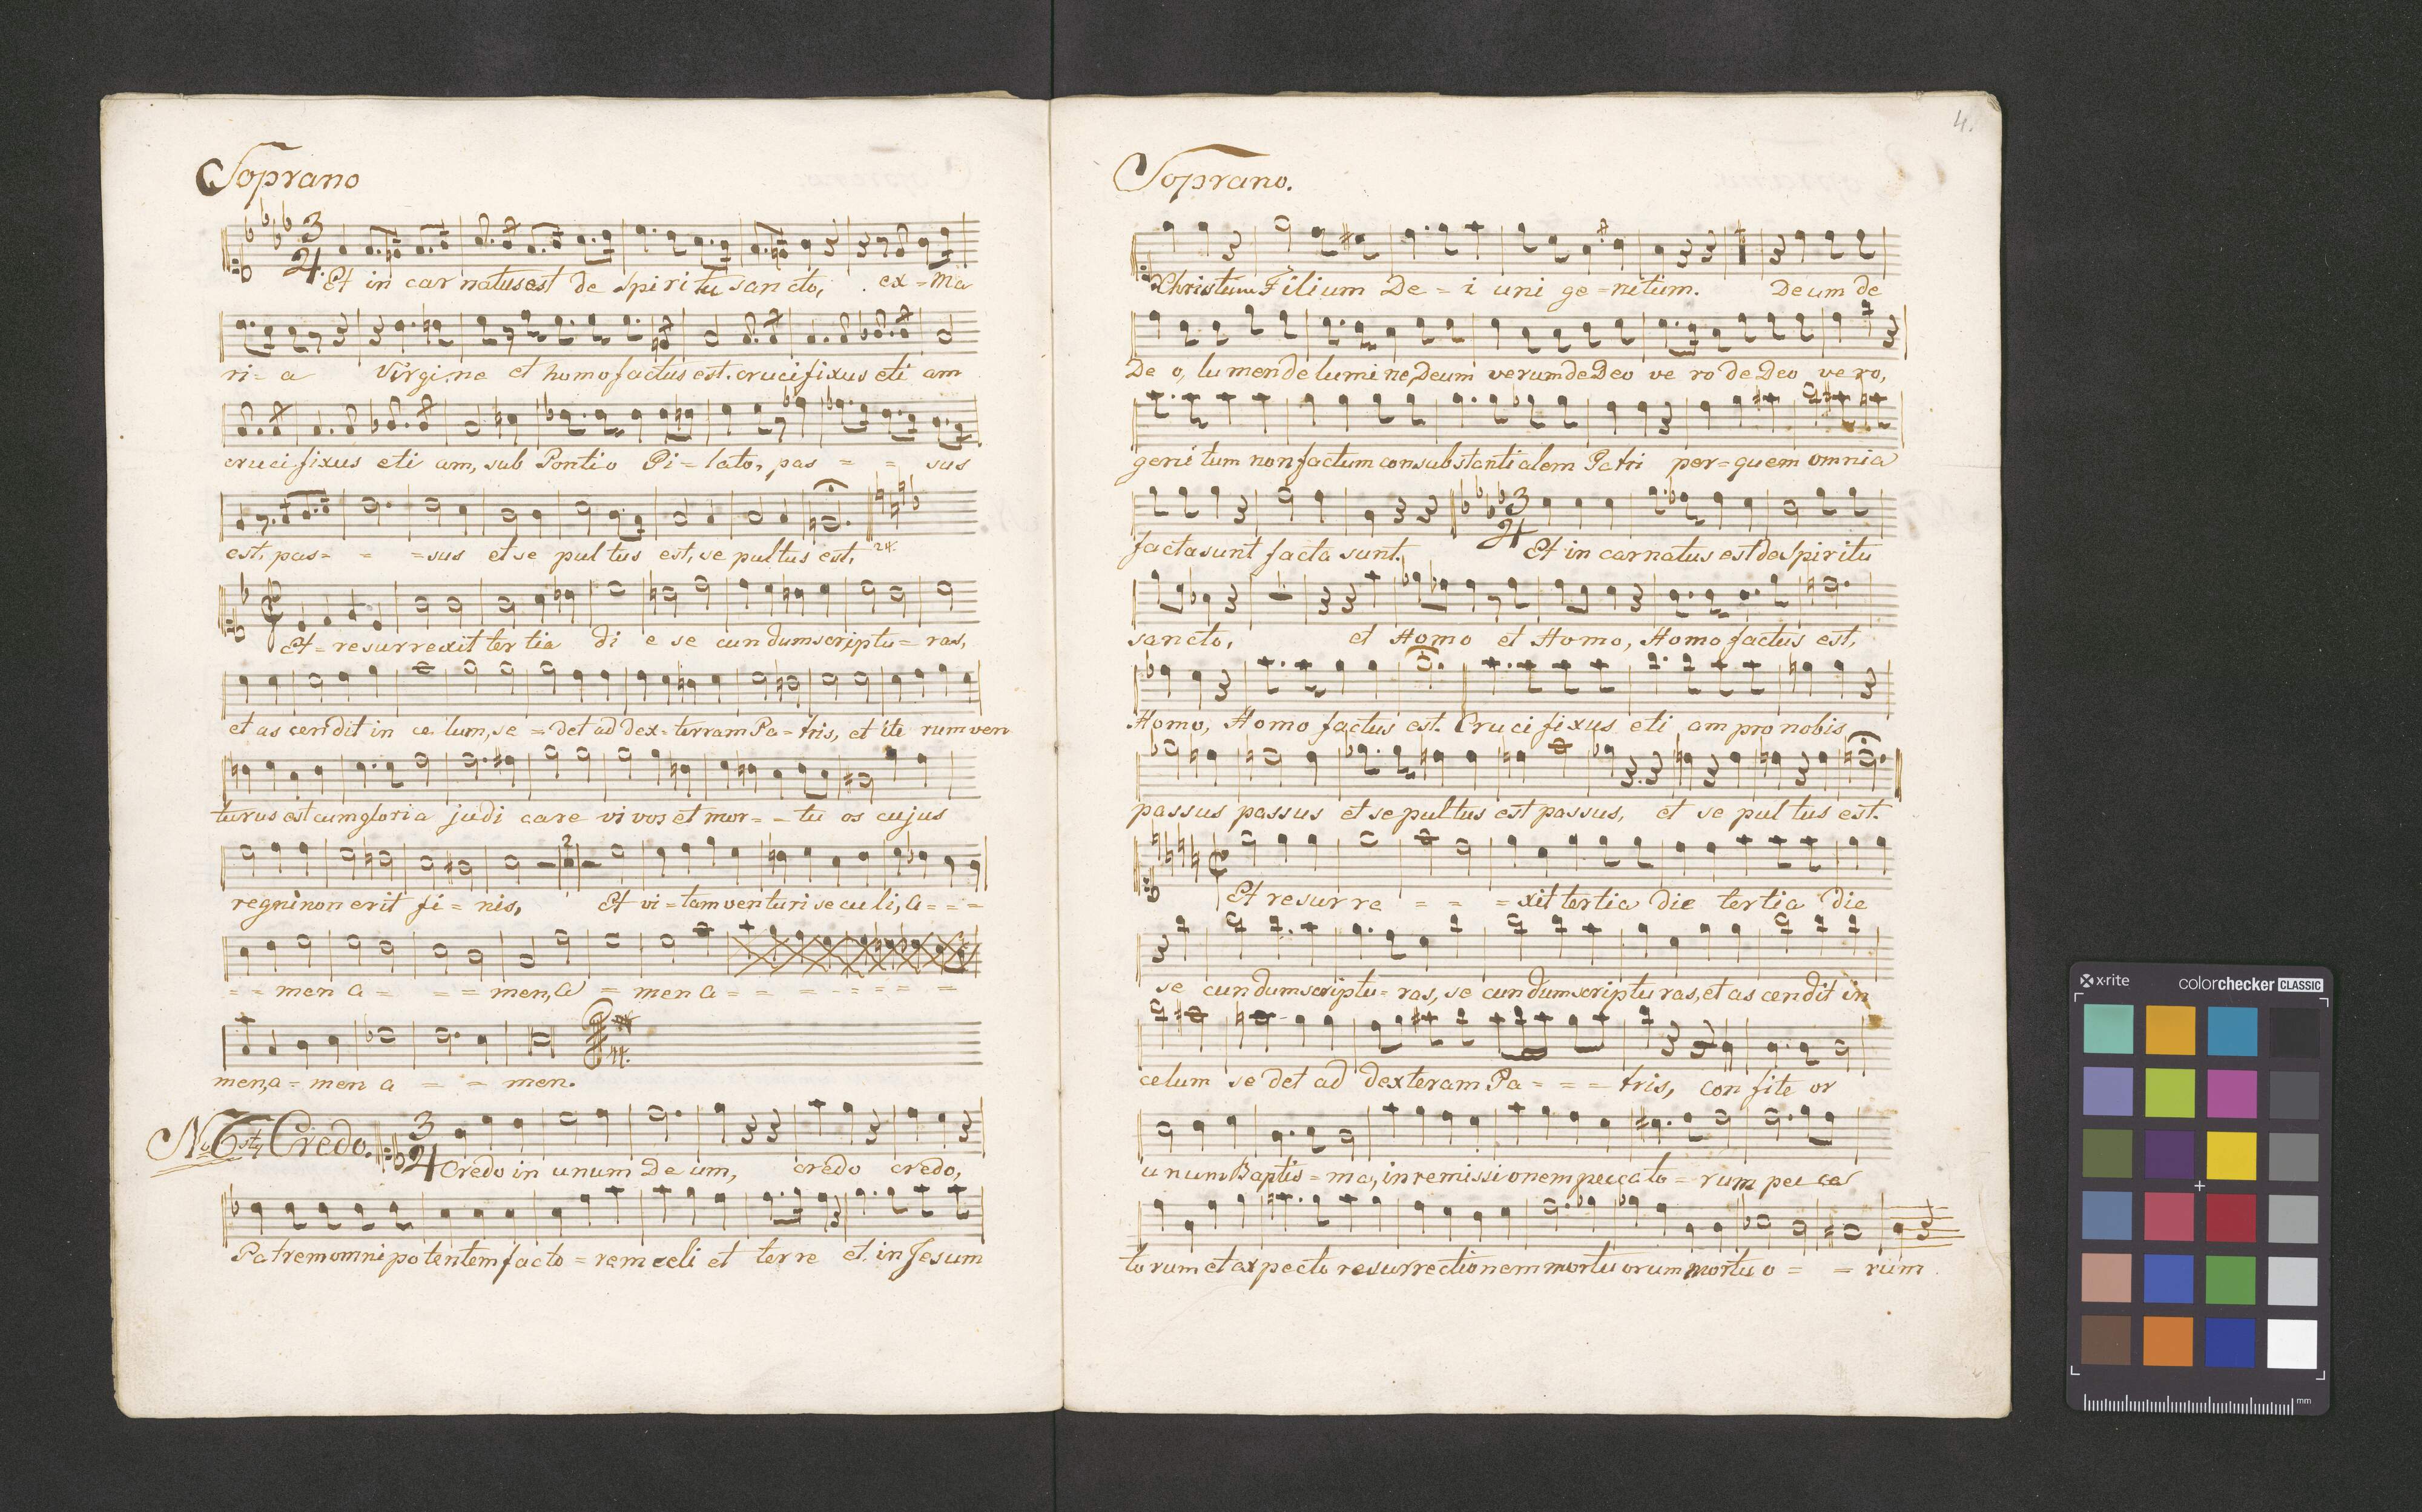 Soprano
3
4 Et in car natus est de spi ri tu san cto, ex = Ma
ri = a Virgi ne et homo factus est. cruci fixus eti am
cruci fixus eti am, sub Pontio Pi = lato, pas = = sus
est, pas = = = sus et se pul tus est, se pultus est,
Et = re sur rexit ter tia di e se cun dum scriptu = ras,
et as cen dit in ce lum, se = det ad dex = terram Pa = tris, et ite rum ven
turus est cum gloria judi care vi vos et mor = = tu os cujus
2
regni non erit fi = nis, Et vi = tam venturi se cu li, a = = =
= = men a = = = men, a = men a = = = = = = = =
men, a = men a = = men.
No 6sty Credo. 3
4 Credo in unum De um, credo credo,
Patrem omni po tentem facto = rem celi et ter re et in Jesum
4.
Soprano.
Christum Filium De = i uni ge = nitum. Deum de
De o, lu men de lumi ne, Deum verum de Deo ve ro de Deo vero,
geni tum non factum con substanti alem Patri per = quem omnia
3
facta sunt facta sunt. 4 Et in carnatus est de Spiritu
sancto, et Homo et Homo, Homo factus est,
Homo, Homo factus est. Cruci fixus eti am pro nobis
passus passus et se pultus est passus, et se pul tus est.
Et resur re = = = xit tertia die tertia die
se cun dum scriptu = ras, se cun dum scriptu ras, et as cen dit in
celum se det ad dexteram Pa = = = tris, con fite or
unum Baptis = ma, in remissi onem peccato = rum pec ca
to rum et ex pecto resurrectionem mortu orum mortu o = = rum
x-rite colorchecker CLASSIC
mm